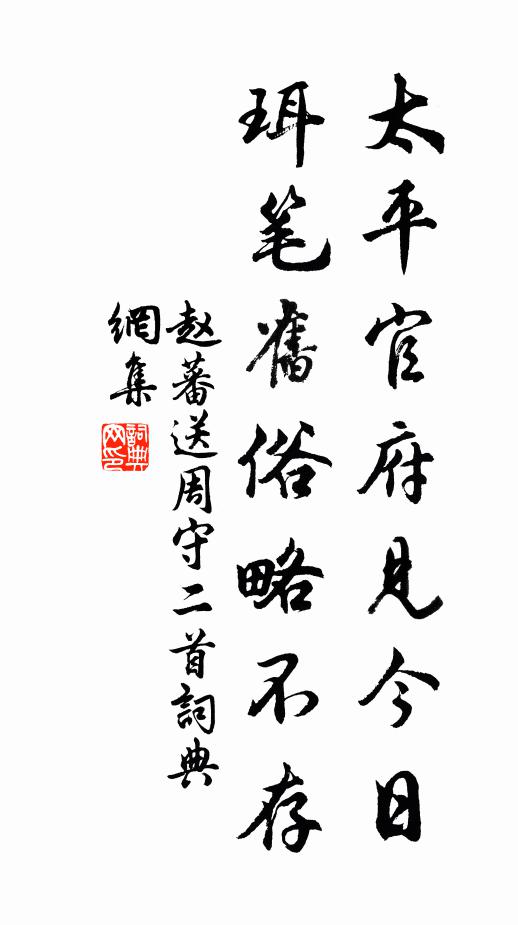 太平官府見今日
珥笔舊俗略不存
赵蕃送周守二首詞典
網集
詞典網印